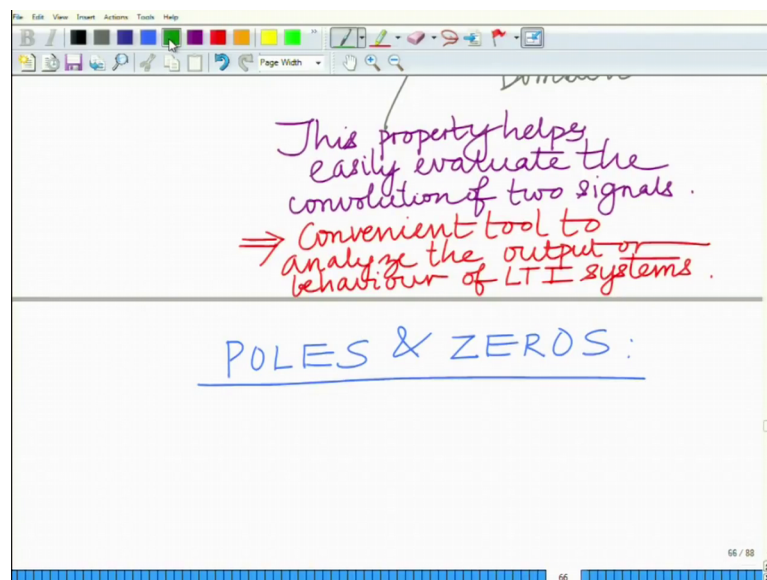 File Edit View Insert Actions Tools Help
B I
Page Width
Domain
This property helps
easily evaluate the
convolution of two signals.
⇒ Convenient tool to
analyze the output or
behaviour of LTI systems.
POLES & ZEROS:
66 / 88
66